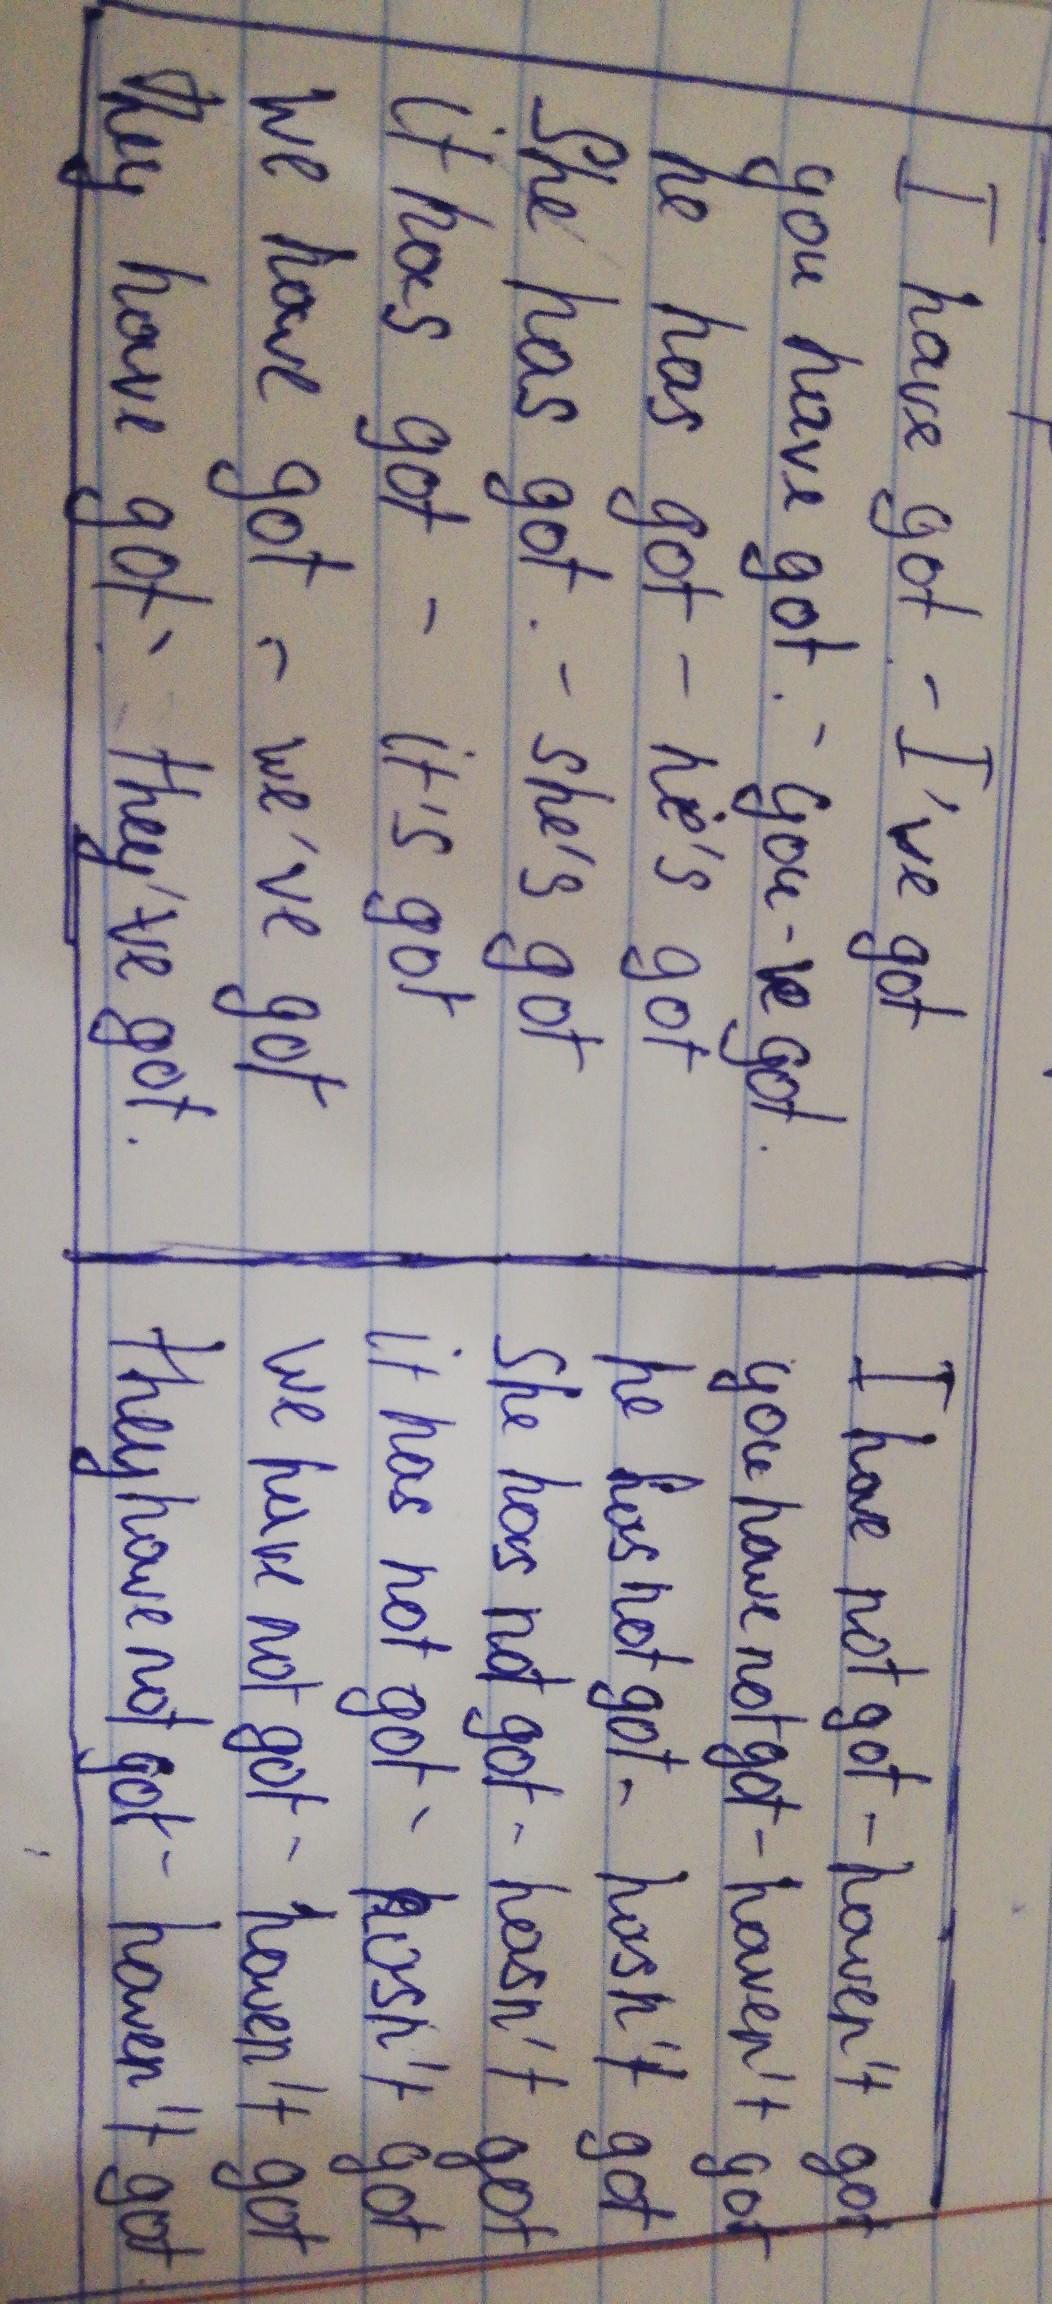 I have got. - I've got
you have got. - you-ve got.
he has got - he's got
She has got. - she's got
it has got - it's got
we have got - we've got
they have got - they've got.
I have not got - haven't got
you have not got - haven't got
he has not got - hasn't got
She has not got - hasn't got
it has not got - hasn't got
we have not got - haven't got
they have not got - haven't got.